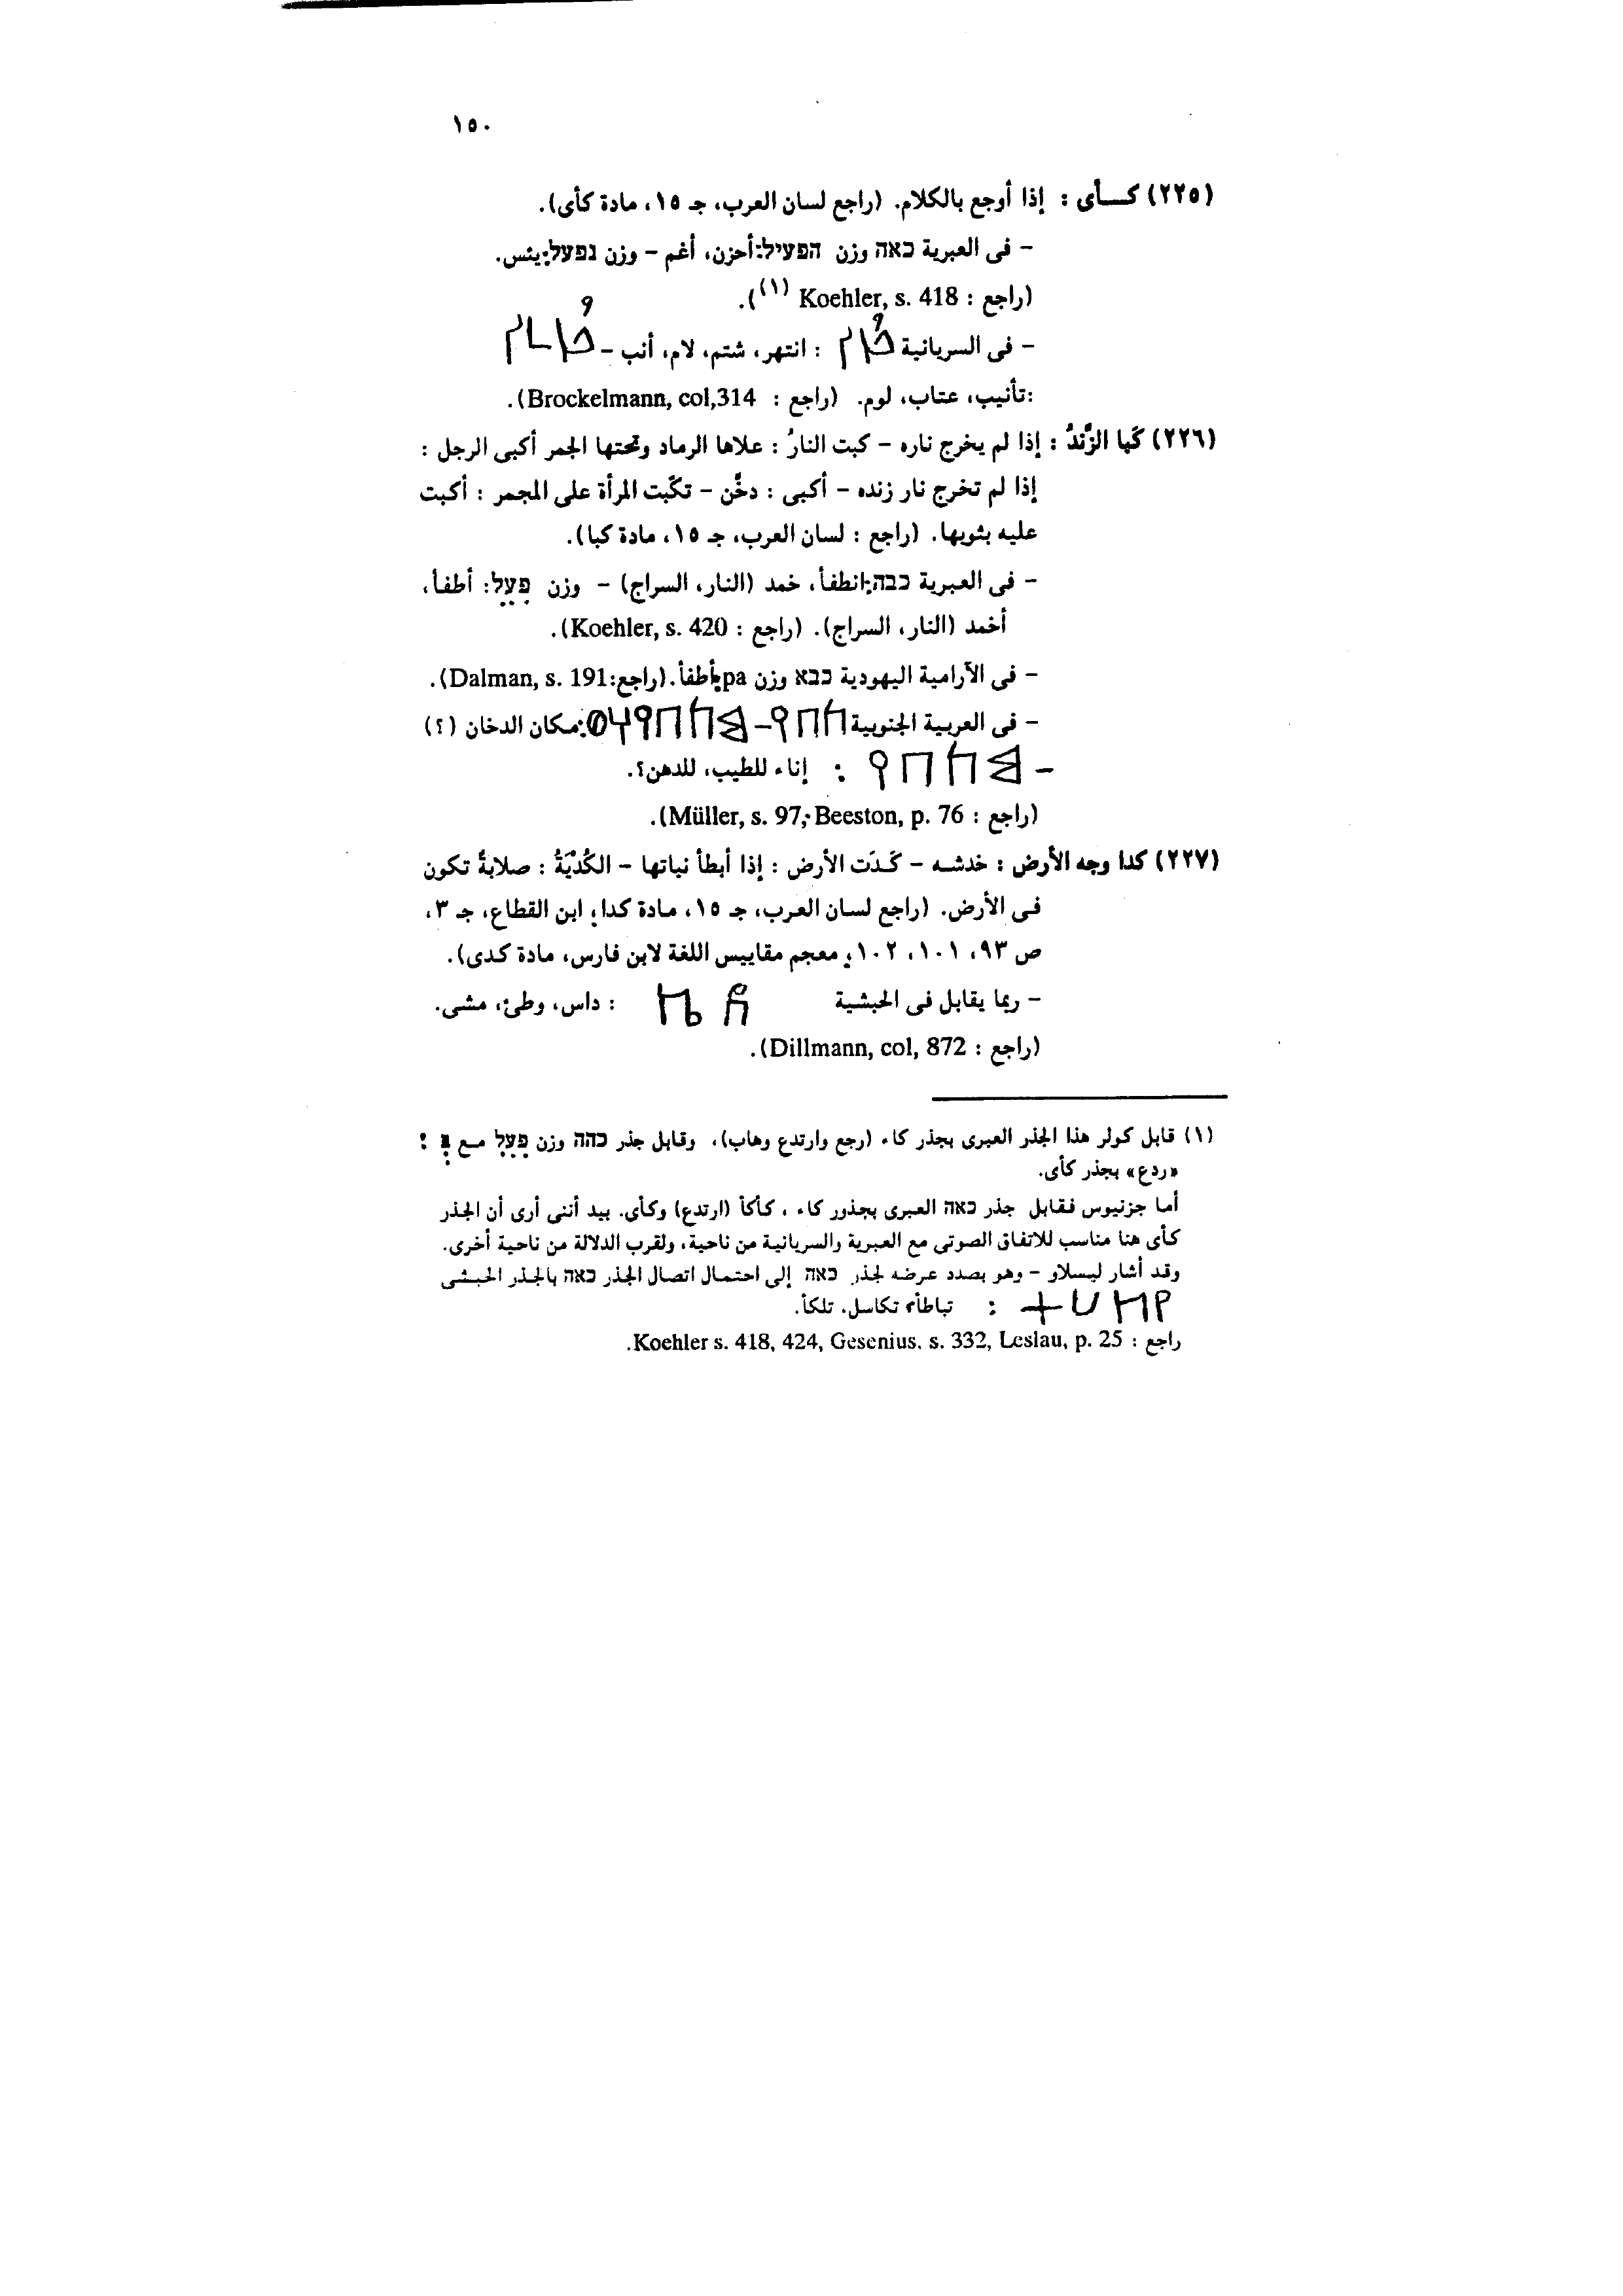 ١٥٠
(٢٢٥) كـــأى : إذا أوجع بالكلام. (راجع لسان العرب، جـ ١٥، مادة كأى).
- فى العبرية כאה وزن הפעיל: أحزن، أغم - وزن נפעל: يئس.
(راجع : Koehler, s. 418 (١)).
- فى السريانية : انتهر، شتم، لام، أنب -
: تأنيب، عتاب، لوم. (راجع : Brockelmann, col,314).
(٢٢٦) كَبا الزَّندُ : إذا لم يخرج ناره - كبت النارُ : علاها الرماد وتحتها الجمر أكبى الرجل :
إذا لم تخرج نار زنده - أكبى : دخَّن - تكّبت المرأة على المجمر : أكبت
عليه بثوبها. (راجع : لسان العرب، جـ ١٥، مادة كبا).
- فى العبرية כבה: انطفأ، خمد (النار، السراج) - وزن פִּעֵל: أطفأ،
أخمد (النار، السراج). (راجع : Koehler, s. 420).
- فى الآرامية اليهودية כבא وزن pa: أطفأ. (راجع: Dalman, s. 191).
- فى العربية الجنوبية : مكان الدخان (؟)
- : إناء للطيب، للدهن؟.
(راجع : Müller, s. 97; Beeston, p. 76).
(٢٢٧) كدا وجه الأرض : خدشـه - كَـدَت الأرض : إذا أبطأ نباتها - الكُدْيَةُ : صلابةٌ تكون
فى الأرض. (راجع لسان العرب، جـ ١٥، مادة كدا؛ ابن القطاع، جـ ٣،
ص ٩٣، ١٠١، ١٠٢؛ معجم مقاييس اللغة لابن فارس، مادة كدى).
- ربما يقابل فى الحبشية : داس، وطئ، مشى.
(راجع : Dillmann, col, 872).
(١) قابل كولر هذا الجذر العبرى بجذر كاء (رجع وارتدع وهاب)، وقابل جذر כהה وزن פִּעֵל مـع בְּ :
«ردع» بجذر كأى.
أما جزنيوس فـقابل جذر כאה العبرى بجذور كاء ، كأكأ (ارتدع) وكأى. بيد أننى أرى أن الجذر
كأى هنا مناسب للاتفاق الصوتى مع العبرية والسريانية من ناحية، ولقرب الدلالة من ناحية أخرى.
وقد أشار ليسلاو - وهو بصدد عرضه لجذر כאה إلى احتمال اتصال الجذر כאה بالجذر الحبشى
: تباطأ، تكاسل، تلكأ.
راجع : Koehler s. 418, 424, Gesenius. s. 332, Leslau, p. 25.